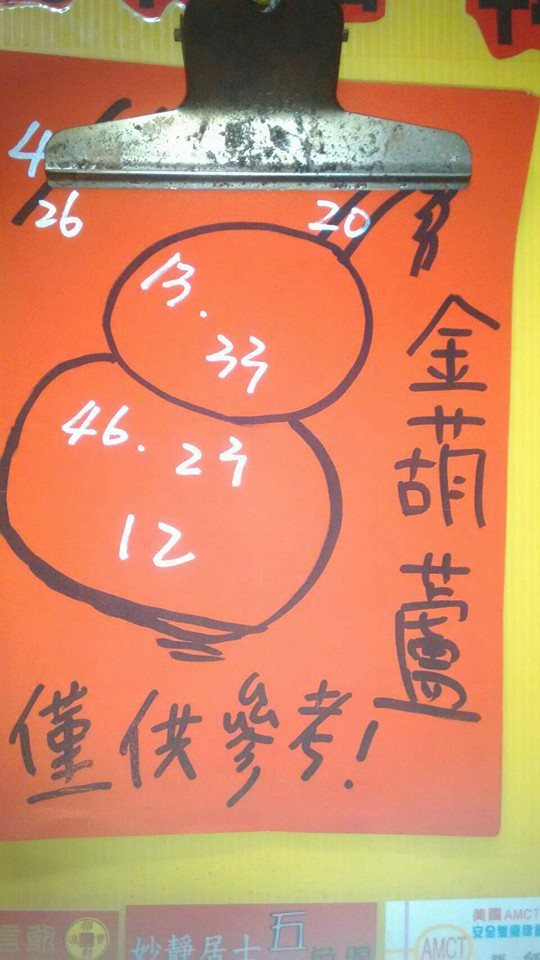 4
26
20
13.
33
46. 23
12
金葫蘆
僅供參考!
妙靜居士五
美國AMCT
AMCT